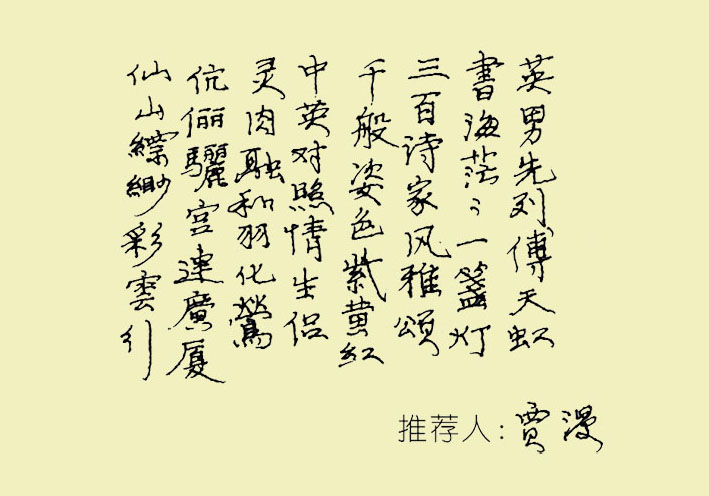 英男先列傅天虹
書海茫々一盞灯
三百诗家风雅颂
千般姿色紫黄红
中英对照情生侣
灵肉融和羽化鶯
伉俪驪宫連廣厦
仙山縹緲彩雲引
推荐人：贾漫